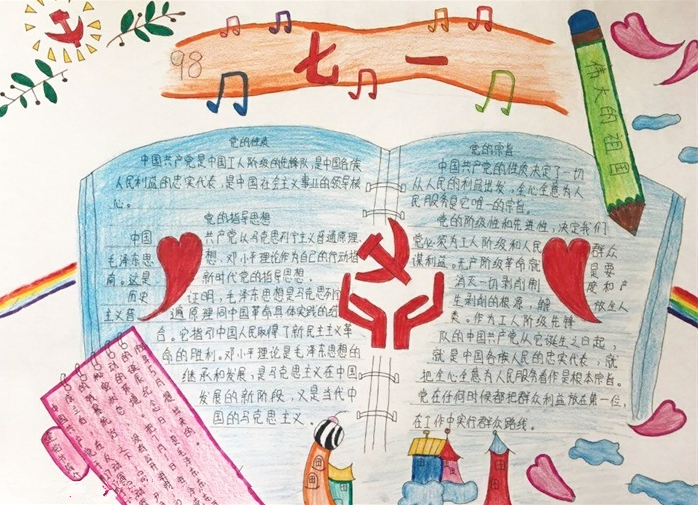 98
七一
伟大的祖国
党的性质
中国共产党是中国工人阶级的先锋队,是中国各族
人民利益的忠实代表,是中国社会主义事业的领导核
心。
党的指导思想
中国共产党以马克思列宁主义普通原理、
毛泽东思想、邓小平理论作为自己的行动指
南。这是新时代党的指导思想.
历史证明,毛泽东思想是马克思列
主义普通原理同中国革命具体实践的
合。它指引中国人民取得了新民主主义革
命的胜利。邓小平理论是毛泽东思想的
继承和发展,是马克思主义在中国
发展的新阶段,又是当代中
国的马克思主义.
党的宗旨
中国共产党的性质决定了一切
从人民的利益出发,全心全意为人
民服务是它唯一的宗旨。
党的阶级性和先进性,决定我们
党必须为工人阶级和人民群众
谋利益。无产阶级革命就是要
消灭一切剥削制度和产
生剥削的根源,解放全人
类。作为工人阶级先锋
队的中国共产党从它诞生之日起,
就是中国各族人民的忠实代表,就
把全心全意为人民服务看作是根本宗旨。
党在任何时候都把群众利益放在第一位,
在工作中实行群众路线。